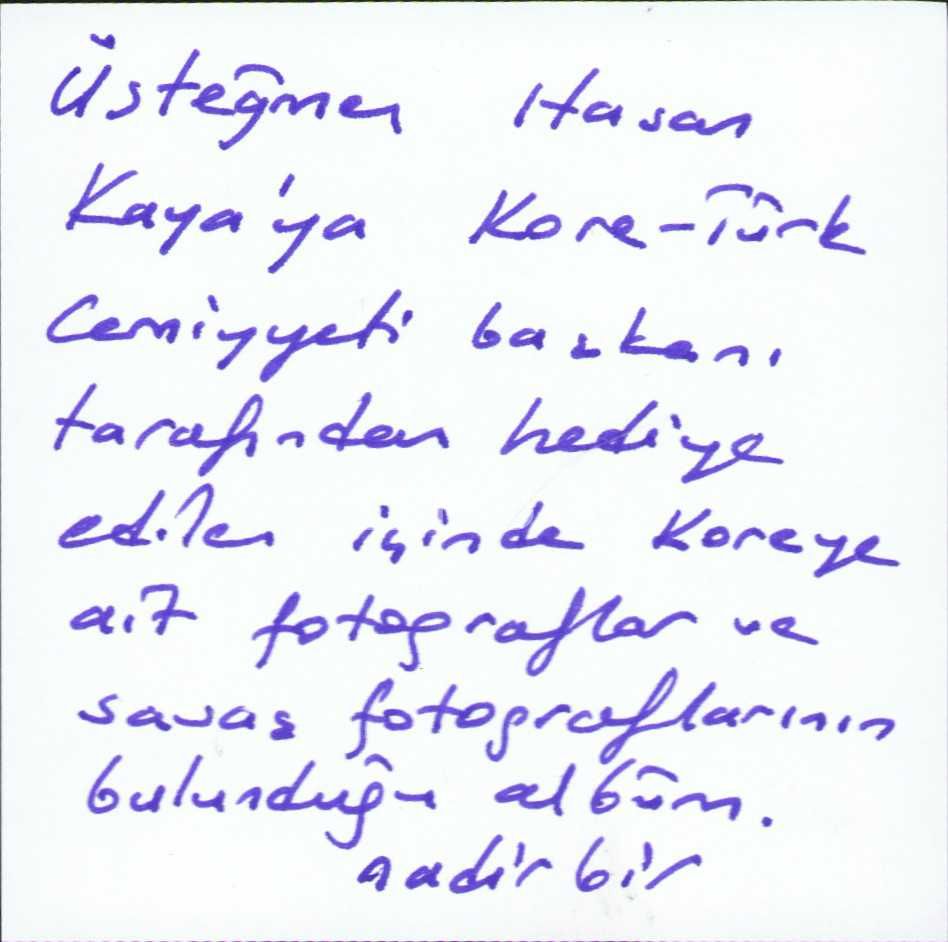 Üsteğmen Hasan
Kaya'ya Kore-Türk
Cemiyyeti başkanı
tarafından hediye
edilen içinde Koreye
ait fotograflar ve
savaş fotograflarının
bulunduğu albüm.
nadir bir